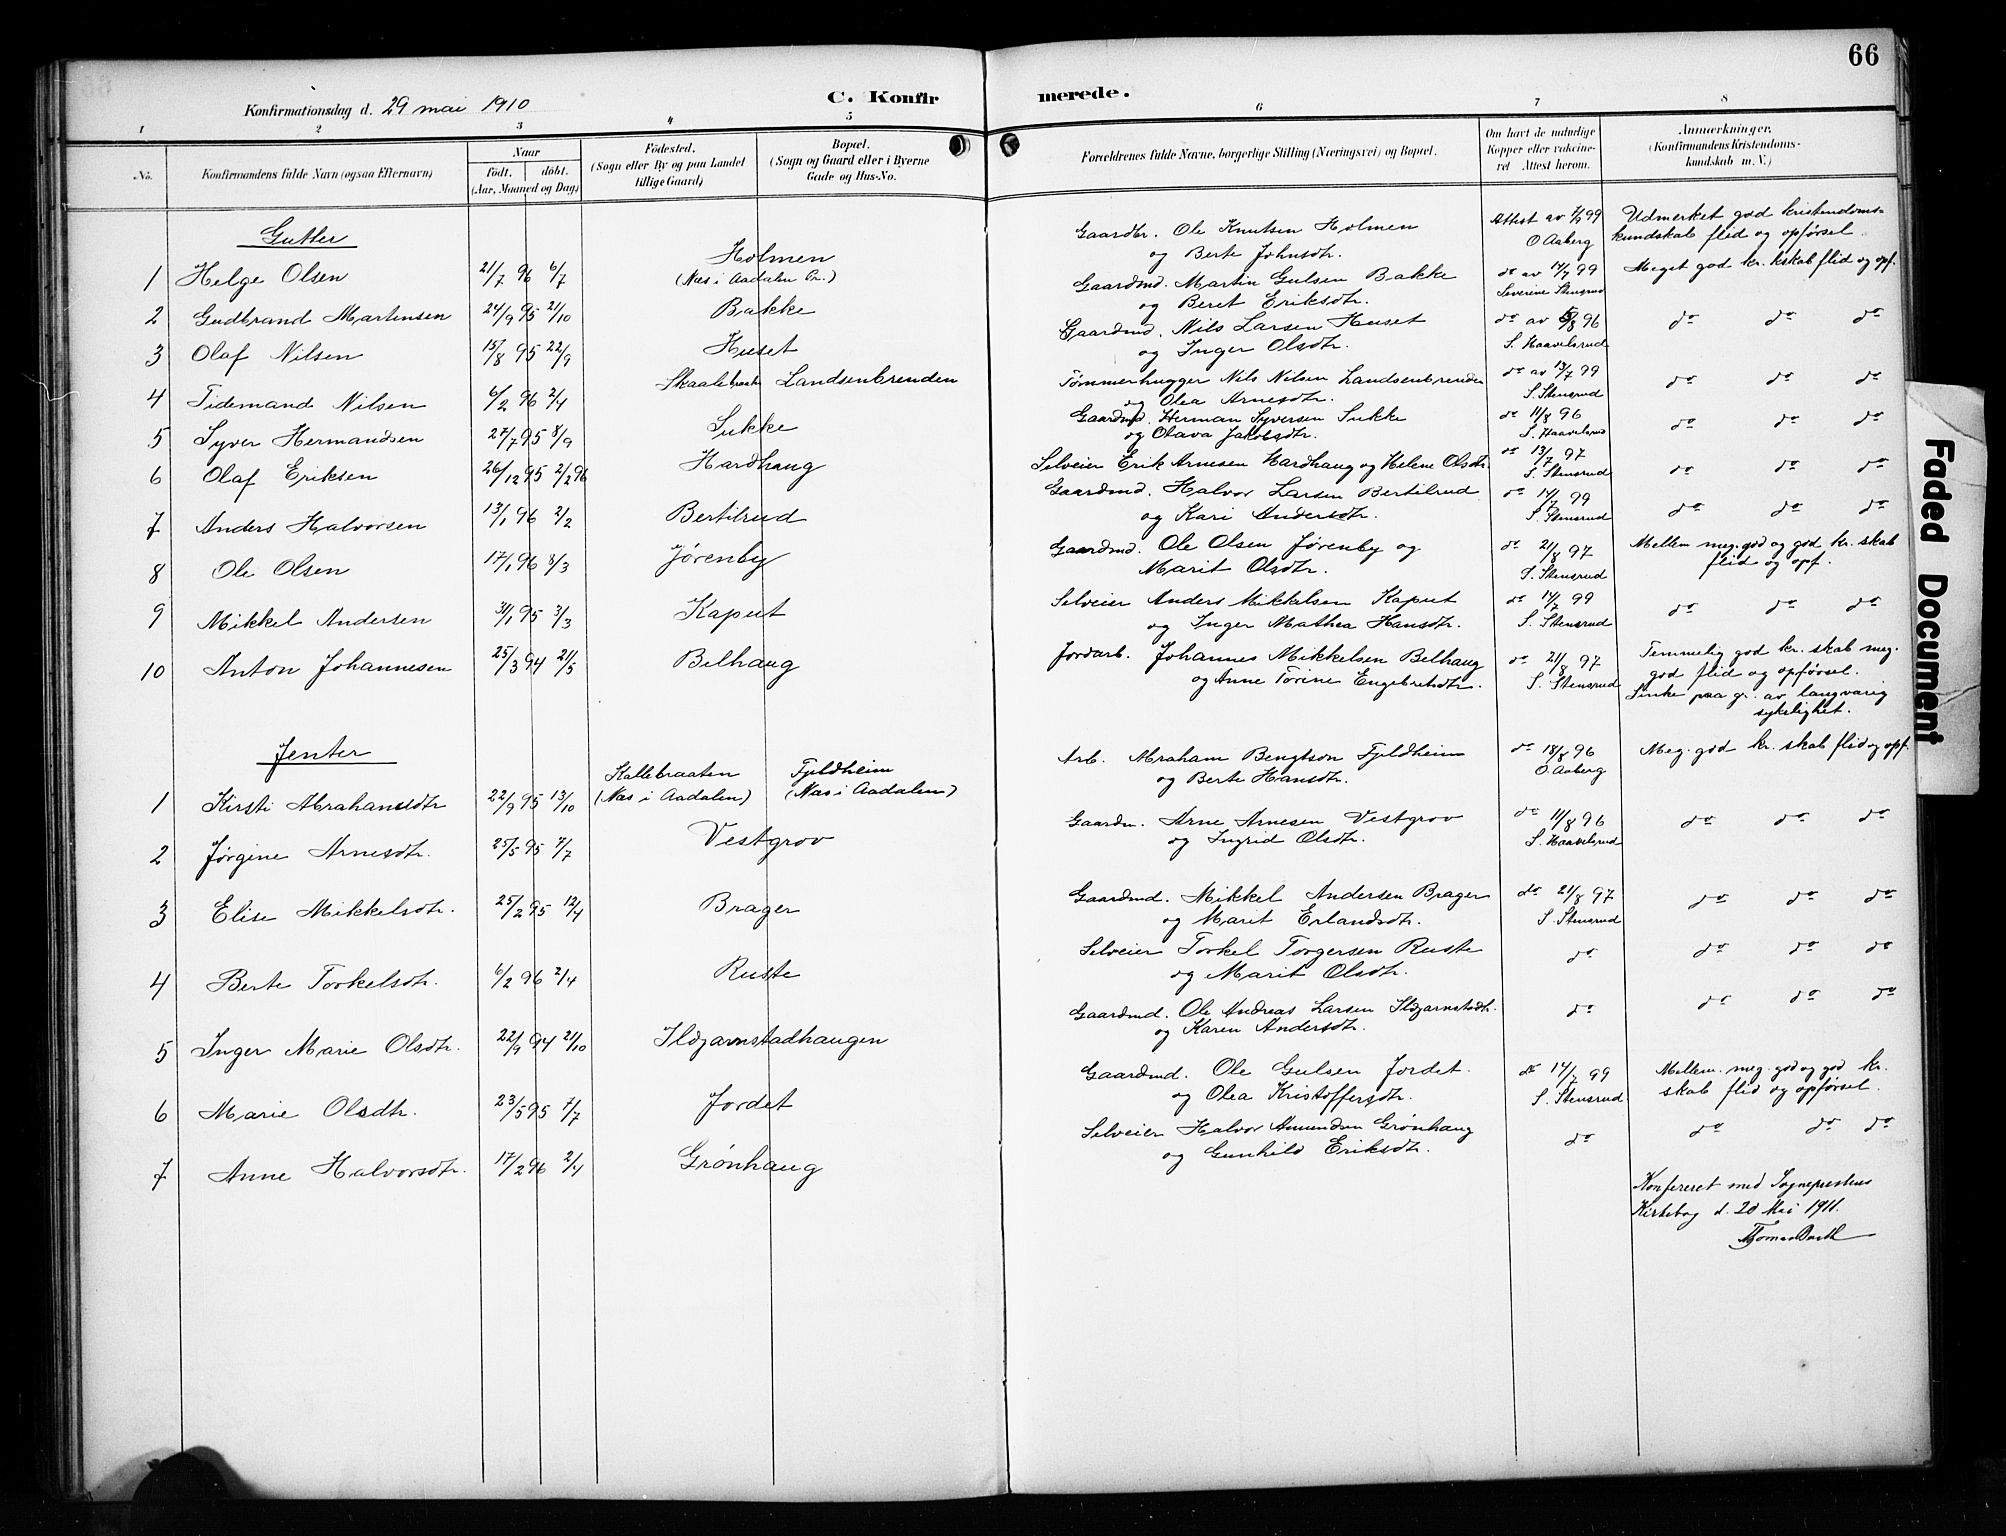 66
Konfirmationsdag d. 29 mai 1910
C. Konfir merede.
1 2 3 4 5 6 7 8
No.
Konfirmandens fulde Navn (ogsaa Efternavn)
Naar
født. døbt.
(Aar, Maaned og Dag)
Fødested.
(Sogn eller By og paa Landet
tillige Gaard)
Bopæl.
(Sogn og Gaard eller i Byerne
Gade og Hus-No.
Forældrenes fulde Navne, borgerlige Stilling (Næringsvei) og Bopæl.
Om havt de naturlige
Kopper eller vakcine-
ret Attest herom.
Anmærkninger.
(Konfirmandens Kristendoms-
kundskab m. V.)
Gutter
1 Helge Olsen 21/7 96 6/7 Holmen
(Næs i Aadalen Pr.)
Gaardbr. Ole Knutsen Holmen
og Berte Johnsdtr.
Attest av 7/9 99
O Aaberg
Udmerket god kristendoms-
kundskab flid og opførsel.
2 Gudbrand Martinsen 24/9 95 21/10 Bakke
Gaardmd. Martin Gulsen Bakke
og Beret Eriksdtr.
do av 14/7 99
Severine Stensrud
Meget god kr. kskab flid og opf.
3 Olaf Nilsen 15/8 95 22/9 Huset
Gaardmd. Nils Larsen Huset
og Inger Olsdtr.
do av 5/8 96
S. Haavelsrud
do do do
4 Tidemand Nilsen 6/2 96 2/4 Skaalebraat Landsenbrenden
Tømmerhugger Nils Nilsen Landsenbrenden
og Olea Arnesdtr.
do av 13/7 99
S. Stensrud
do do do
5 Syver Hermandsen 27/7 95 8/9 Sukke
Gaardmd. Herman Syversen Sukke
og Olava Jakobsdtr.
do 11/8 96
S. Haavelsrud
do do do
6 Olaf Eriksen 26/12 95 2/2 96 Hardhaug
Selveier Erik Arnesen Hardhaug og Helene Olsdtr.
do 13/7 97
S. Stensrud
do do do
7 Anders Halvorsen 13/1 96 2/2 Bertilrud
Gaardmd. Halvor Larsen Bertilrud
og Kari Andersdtr.
do 14/7 99
S. Stensrud
do do do
8 Ole Olsen 17/1 96 8/3 Jørenby
Gaardmd. Ole Olsen Jørenby og
Marit Olsdtr.
do 21/8 97
S. Stensrud
Mellem meg. god og god kr. skab
flid og opf.
9 Mikkel Andersen 31/1 95 3/3 Kaput
Selveier Anders Mikkelsen Kaput
og Inger Mathea Hansdtr.
do 14/7 99
S. Stensrud
do do do
10 Anton Johannesen 25/3 94 21/5 Belhaug
Jordarb. Johannes Mikkelsen Belhaug
og Anne Torine Engebretsdtr.
do 21/8 97
S. Stensrud
Temmelig god kr. skab meg.
god flid og opførsel.
Sinke paa gr. av langvarig
sykelighet.
Jenter
1 Kirsti Abrahamsdtr 22/9 95 13/10 Kallebraaten Fjeldheim
(Næs i Aadalen) (Næs i Aadalen)
Arb. Abraham Bengtson Fjeldheim
og Berte Hansdtr.
do 18/8 96
O. Aaberg
Meg. god kr. skab flid og opf.
2 Jørgine Arnesdtr. 25/5 95 7/7 Vestgrov
Gaardm. Arne Arnesen Vestgrov
og Ingrid Olsdtr.
do 11/8 96
S. Haavelsrud
do do do
3 Elise Mikkelsdtr. 25/2 95 12/4 Brager
Gaardmd. Mikkel Andersen Brager
og Marit Erlandsdtr.
do 21/8 97
S. Stensrud
do do do
4 Berte Torkelsdtr. 6/2 96 2/4 Ruste
Selveier Torkel Torgersen Ruste
og Marit Olsdtr.
do
do do do
5 Inger Marie Olsdtr. 22/9 94 21/10 Ildjarnstadhaugen
Gaardmd. Ole Andreas Larsen Ildjarnstadh.
og Karen Andersdtr.
do
do do do
6 Marie Olsdtr. 23/5 95 7/7 Jordet
Gaardmd. Ole Gulsen Jordet.
og Olea Kristoffersdtr.
do 14/7 99
S. Stensrud
Mellem meg. god og god kr.
skab flid og opførsel.
7 Anne Halvorsdtr. 17/2 96 2/4 Grønhaug
Selveier Halvor Amundsen Grønhaug
og Gunhild Eriksdtr.
do
do do do
Konfereret med Sogneprestens
Kirkebog d. 20 Mai 1911.
Faded Document